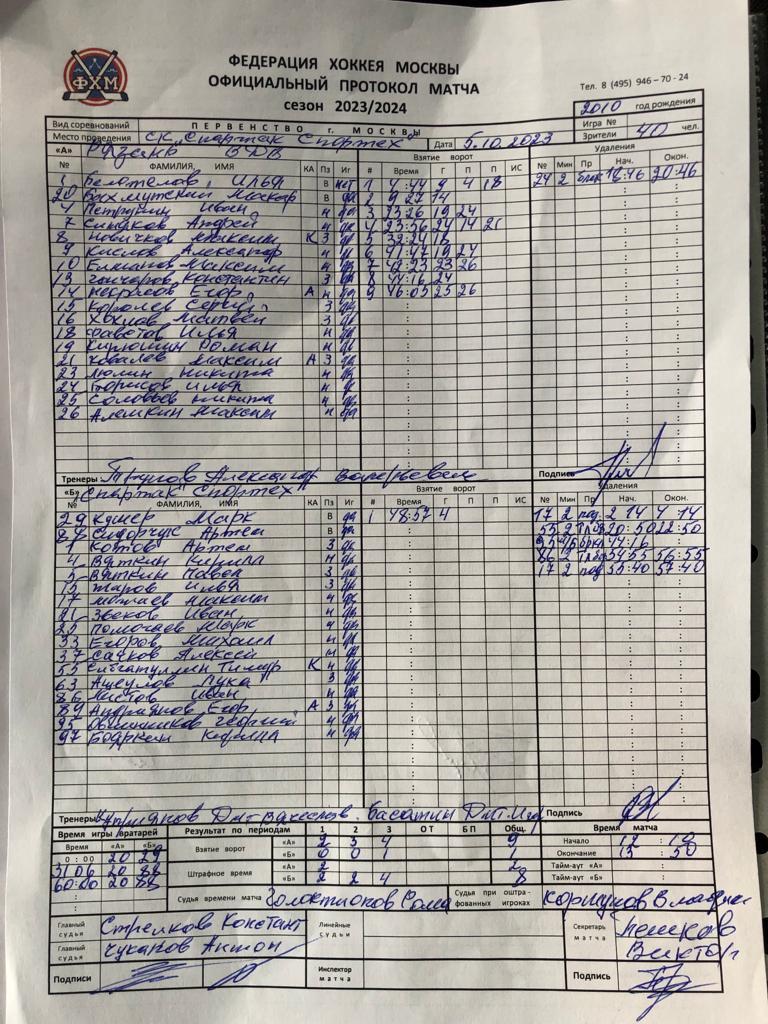 ФХМ
ФЕДЕРАЦИЯ ХОККЕЯ МОСКВЫ
ОФИЦИАЛЬНЫЙ ПРОТОКОЛ МАТЧА
сезон 2023/2024
Тел. 8 (495) 946-70-24
2010 год рождения
Вид соревнований ПЕРВЕНСТВО г. МОСКВЫ Игра №
Место проведения СК "Спартак Спортех" Дата 5.10.2023 Зрители 40 чел.
«А» Рязань ВДВ Взятие ворот Удаления
№ ФАМИЛИЯ, ИМЯ КА Пз Иг # Время Г П П ИС № Мин Пр Нач. Окон.
1 Белотелов Илья В нет 1 4:44 9 4 18 24 2 18:46 20:46
20 Бахмутский Макар В да 2 9:27 14
4 Петрунин Иван н да 3 23:26 19 24
7 Синуков Андрей н да 4 23:56 24 14 21
8 Новичков Максим К З да 5 32:24 18
9 Кислов Александр н да 6 41:47 19 24
10 Елманов Максим н да 7 42:23 23 26
13 Гончаров Константин З да 8 44:16 24
14 Некрасов Егор А н да 9 46:05 25 26
15 Королев Сергей З да
16 Хохлов Матвей З да
18 Фаботов Илья н да
19 Кирюшин Роман н да
21 Ковалев Максим А З да
23 Люлин Никита н да
24 Борисов Илья н да
25 Соловьев Никита н да
26 Алешкин Максим н да
Тренеры Александр Валерьевич Подпись
«Б» "Спартак Спортех" Взятие ворот Удаления
№ ФАМИЛИЯ, ИМЯ КА Пз Иг # Время Г П П ИС № Мин Пр Нач. Окон.
29 Кушер Марк В да 1 48:57 4 17 2 под. 2 14 4 14
88 Сидорчук Артем В да 55 2 20:50 22:50
1 Котов Артем З да 44:16
4 Вяткин Кирилл н да 86 2 54 55 56:55
5 Вяткин Павел З да 17 2 под 55:40 57:40
13 Жаров Илья З да
17 Мотаев Максим н да
21 Звеков Иван н да
23 Помочаев Марк н да
33 Егоров Михаил н да
37 Сачков Алексей н да
55 Сибгатуллин Тимур К н да
63 Ашеулов Лука З да
86 Листов Иван н да
89 Андриянов Егор А З да
95 Овчинников Георгий н да
97 Бояркин Кирилл н да
Тренеры Подпись
Время игры вратарей Результат по периодам 1 2 3 ОТ БП Общ. Время матча
Время «А» «Б» Взятие ворот «А» 2 3 4 9 Начало 12 10
0:00 20 29 «Б» 0 0 1 1 Окончание 13 50
31 06 20 88 Штрафное время «А» 2 2 Тайм-аут «А»
60:00 20 88 «Б» 2 2 4 8 Тайм-аут «Б»
Судья времени матча Золоктионов Рома Судья при оштрафованных игроках Коршуков
Главный судья Стрелков Констант Линейные судьи Секретарь матча Пешков Виктор
Главный судья Чуканов Антон
Подписи Инспектор матча Подпись